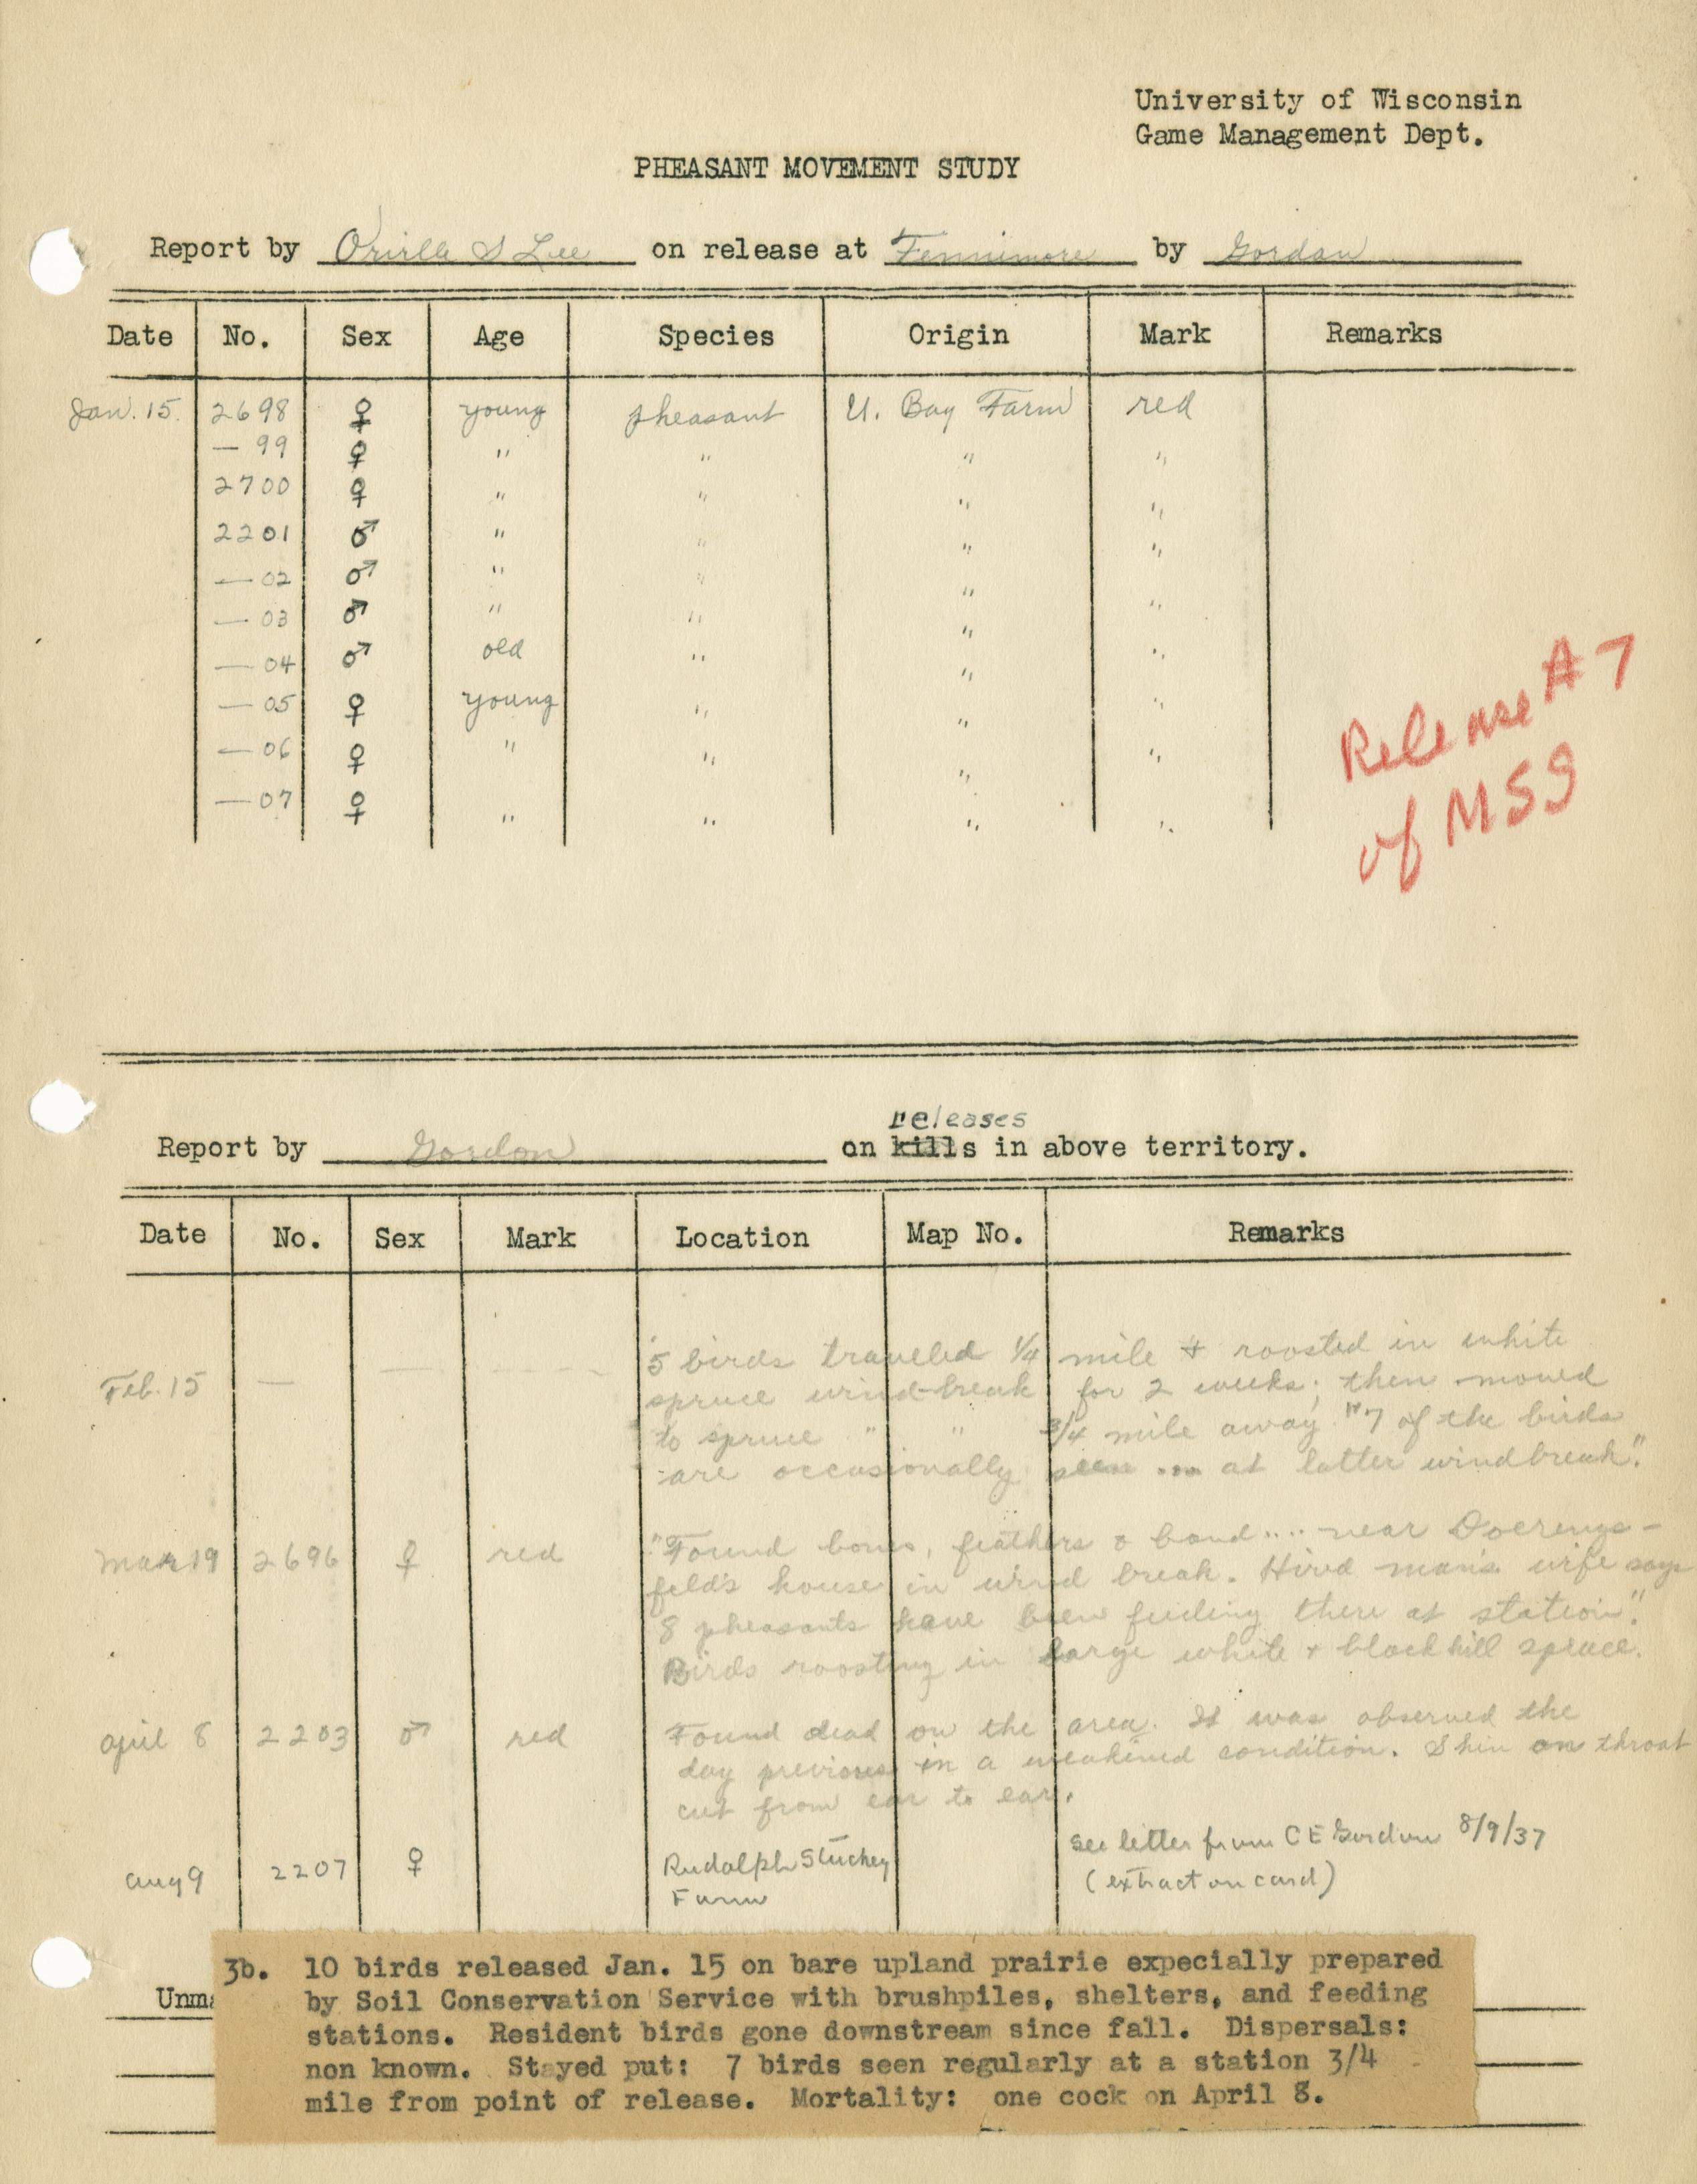 University of Wisconsin
Game Management Dept.
PHEASANT MOVEMENT STUDY
Report by Orville S Lee on release at Fennimore by Gordon
Date No. Sex Age Species Origin Mark Remarks
Jan. 15. 2698 ♀ young pheasant U. Bay Farm red
— 99 ♀ " " " "
2700 ♀ " " " "
2201 ♂ " " " "
— 02 ♂ " " "
— 03 ♂ " " " "
— 04 ♂ old " " "
— 05 ♀ young " " "
— 06 ♀ " " " "
— 07 ♀ " " " "
Release #7
of MSS
releases
Report by Gordon on kills in above territory.
Date No. Sex Mark Location Map No. Remarks
5 birds traveled 1/4 mile & roosted in white
Feb. 15 — — - - - spruce wind-break for 2 weeks; then moved
to spruce " " 3/4 mile away. "7 of the birds
are occasionally seen ... at latter windbreak."
Mar 19 2696 ♀ red "Found bones, feathers & band .... near Doerings-
feld's house in wind break. Hired man's wife says
8 pheasants have been feeding there at station."
Birds roosting in large white & black hill spruce.
April 8 2203 ♂ red Found dead on the area. It was observed the
day previous in a weakened condition. Skin on throat
cut from ear to ear.
Aug 9 2207 ♀ Rudolph Stuckey see letter from C E Gordon 8/9/37
Farm (extract on card)
Unma
3b. 10 birds released Jan. 15 on bare upland prairie expecially prepared
by Soil Conservation Service with brushpiles, shelters, and feeding
stations. Resident birds gone downstream since fall. Dispersals:
non known. Stayed put: 7 birds seen regularly at a station 3/4
mile from point of release. Mortality: one cock on April 8.